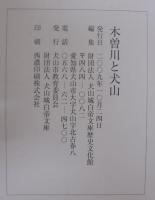 木曽川と犬山
発行日 二〇〇九年一〇月一四日
編集 財団法人 犬山城白帝文庫歴史文化館
〒四八四-〇〇八二
愛知県犬山市大字犬山字北古券八
電話 〇五六八-六二-四七〇〇
発行 犬山市教育委員会
財団法人 犬山城白帝文庫
印刷 西濃印刷株式会社